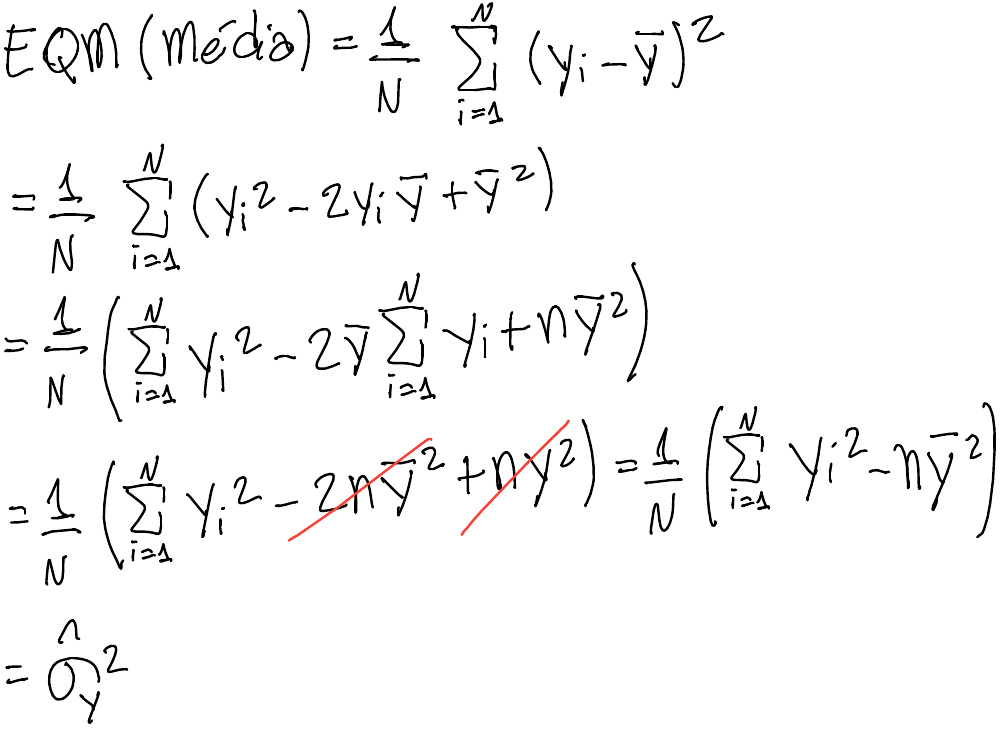 EQM (média) = 1/N ∑_{i=1}^{N} (yᵢ − ȳ)²
= 1/N ∑_{i=1}^{N} (yᵢ² − 2yᵢȳ + ȳ²)
= 1/N (∑_{i=1}^{N} yᵢ² − 2ȳ ∑_{i=1}^{N} yᵢ + nȳ²)
= 1/N (∑_{i=1}^{N} yᵢ² − 2nȳ² + ny²) = 1/N (∑_{i=1}^{N} yᵢ² − nȳ²)
= σ̂_y²